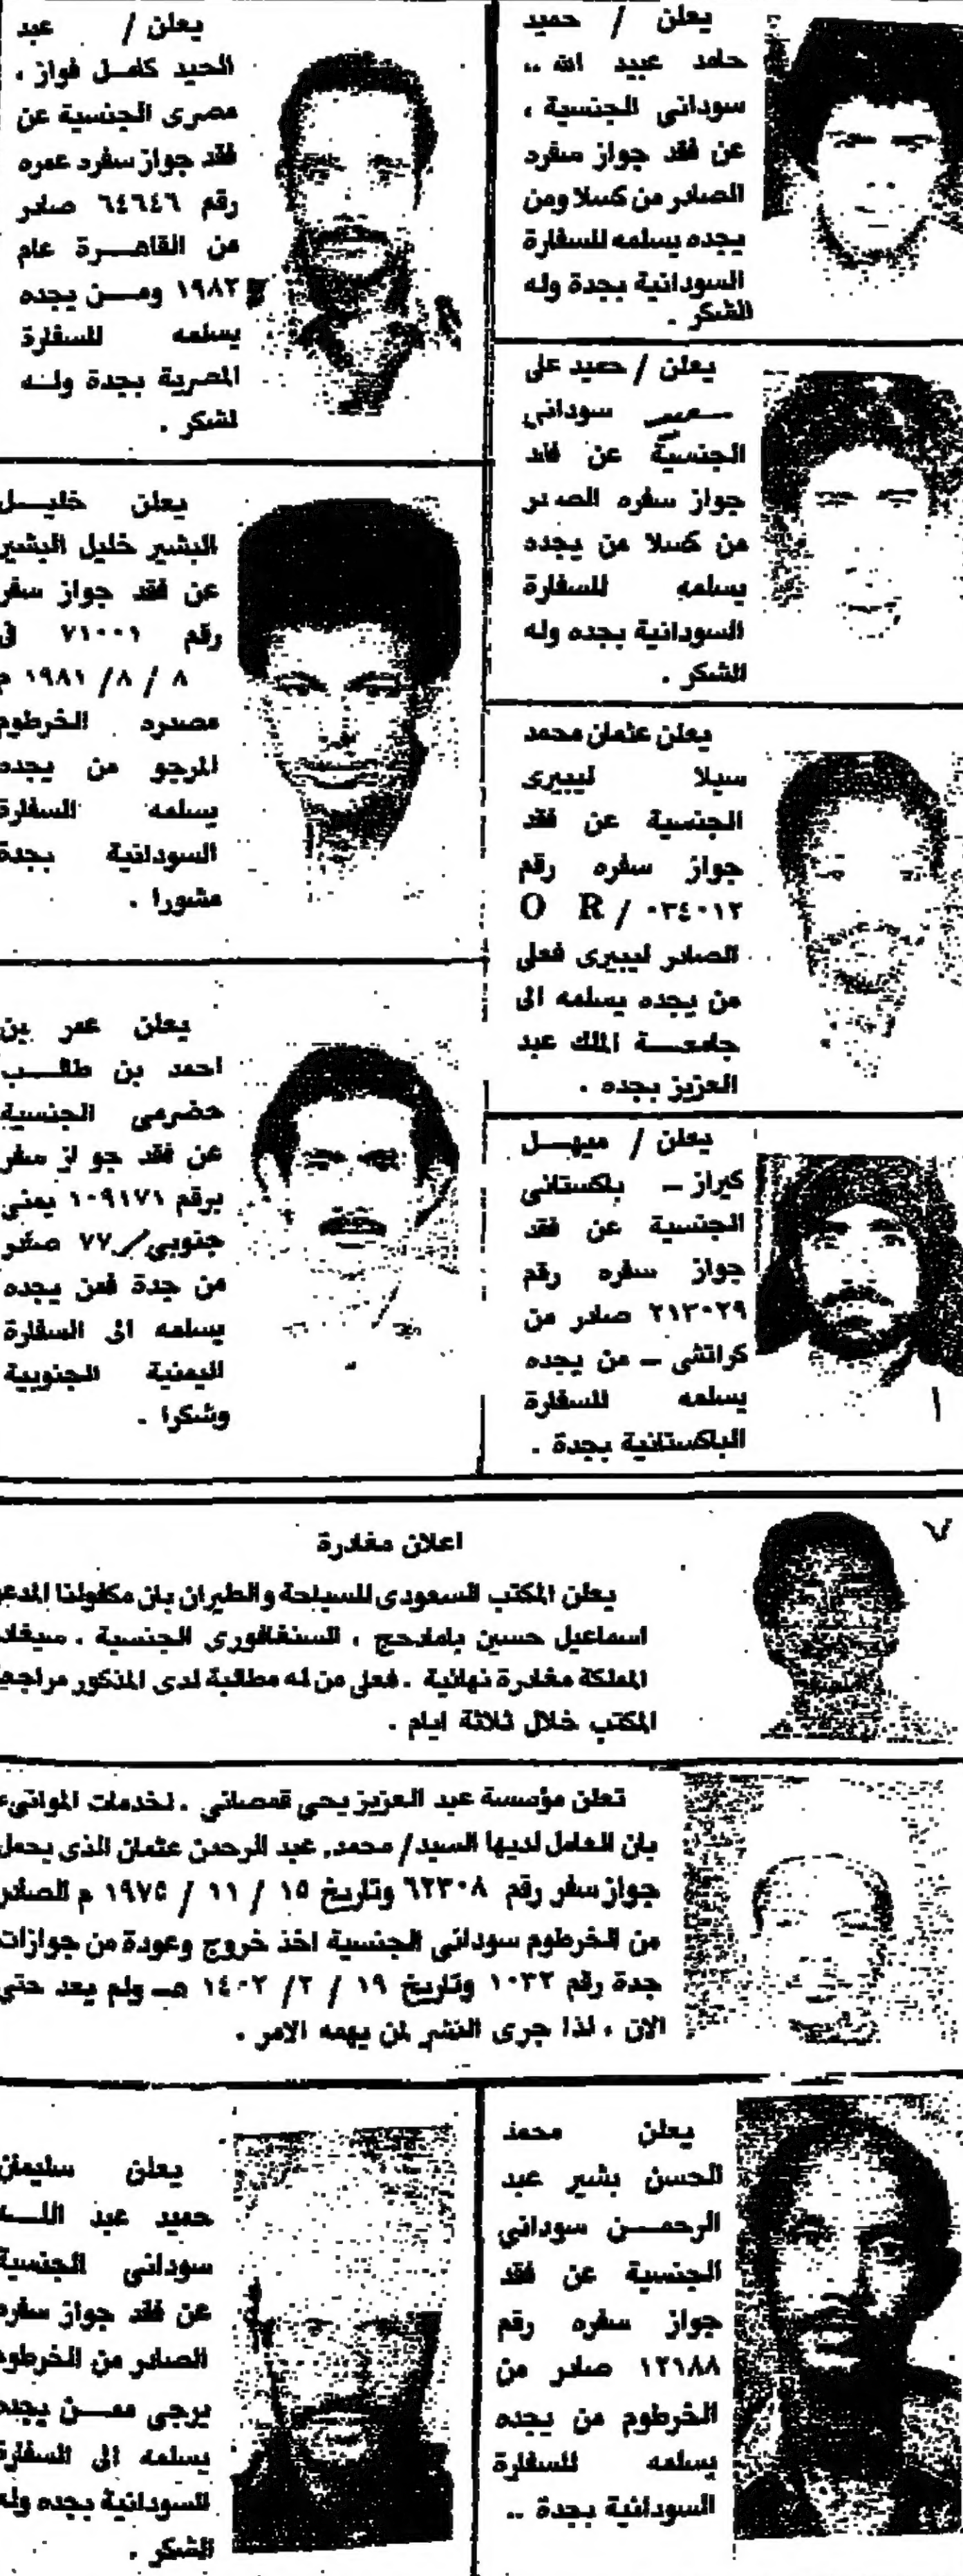 يعلن / حميد
حامد عبيد الله ..
سوداني الجنسية ،
عن فقد جواز سفره
الصادر من كسلا ومن
يجده يسلمه للسفارة
السودانية بجدة وله
الشكر .
يعلن / حميد على
سوداني
الجنسية عن فقد
جواز سفره الصادر
من كسلا من يجده
يسلمه للسفارة
السودانية بجده وله
الشكر .
يعلن عثمان محمد
سيلا ليبيرى
الجنسية عن فقد
جواز سفره رقم
O R / ٠٣٤٠١٢
الصادر ليبيرى فعلى
من يجده يسلمه الى
جامعة الملك عبد
العزيز بجده .
يعلن / ميهل
كيراز - باكستانى
الجنسية عن فقد
جواز سفره رقم
٢١٣٠٢٩ صادر من
كراتشى - من يجده
يسلمه للسفارة
الباكستانية بجدة .
يعلن / عبد
الحيد كامل فواز ،
مصرى الجنسية عن
فقد جواز سفره عمره
رقم ٦٤٦٤٦ صادر
من القاهرة عام
١٩٨٢ ومن يجده
يسلمه للسفارة
المصرية بجدة وله
لشكر .
يعلن خليل
البشير خليل البشير
عن فقد جواز سفر
رقم ٧١٠٠١ فى
٨ / ٨ / ١٩٨١ م
مصدره الخرطوم
المرجو من يجده
يسلمه السفارة
السودانية بجدة
مشورا .
يعلن عمر بن
احمد بن طالب
حضرمى الجنسية
عن فقد جواز سفر
برقم ١٠٩١٧١ يمنى
جنوبى / ٧٧ صادر
من جدة فمن يجده
يسلمه الى السفارة
اليمنية الجنوبية
وشكرا .
اعلان مغادرة
يعلن المكتب السعودى للسياحة والطيران بان مكفولنا المدعو
اسماعيل حسين ، السنغافوري الجنسية . سيغادر
المملكة مغادرة نهائية . فعلى من له مطالبة لدى المذكور مراجعة
المكتب خلال ثلاثة ايام .
تعلن مؤسسة عبد العزيز يحي قمصاني . لخدمات الموانىء
بان العامل لديها السيد / محمد عبد الرحمن عثمان الذى يحمل
جواز سفر رقم ٦٢٣٠٨ وتاريخ ١٥ / ١١ / ١٩٧٥ م الصادر
من الخرطوم سودانى الجنسية اخذ خروج وعودة من جوازات
جدة رقم ١٠٣٢ وتاريخ ١٩ / ٢ / ١٤٠٢ هـ ولم يعد حتى
الان ، لذا جرى النشر لمن يهمه الامر .
يعلن محمد
الحسن بشير عبد
الرحمن سوداني
الجنسية عن فقد
جواز سفره رقم
١٢١٨٨ صادر من
الخرطوم من يجده
يسلمه للسفارة
السودانية بجدة ..
يعلن سليمان
حميد عبد الله
سودانى الجنسية
عن فقد جواز سفره
الصادر من الخرطوم
يرجى ممن يجده
يسلمه الى السفارة
السودانية بجده وله
الشكر .